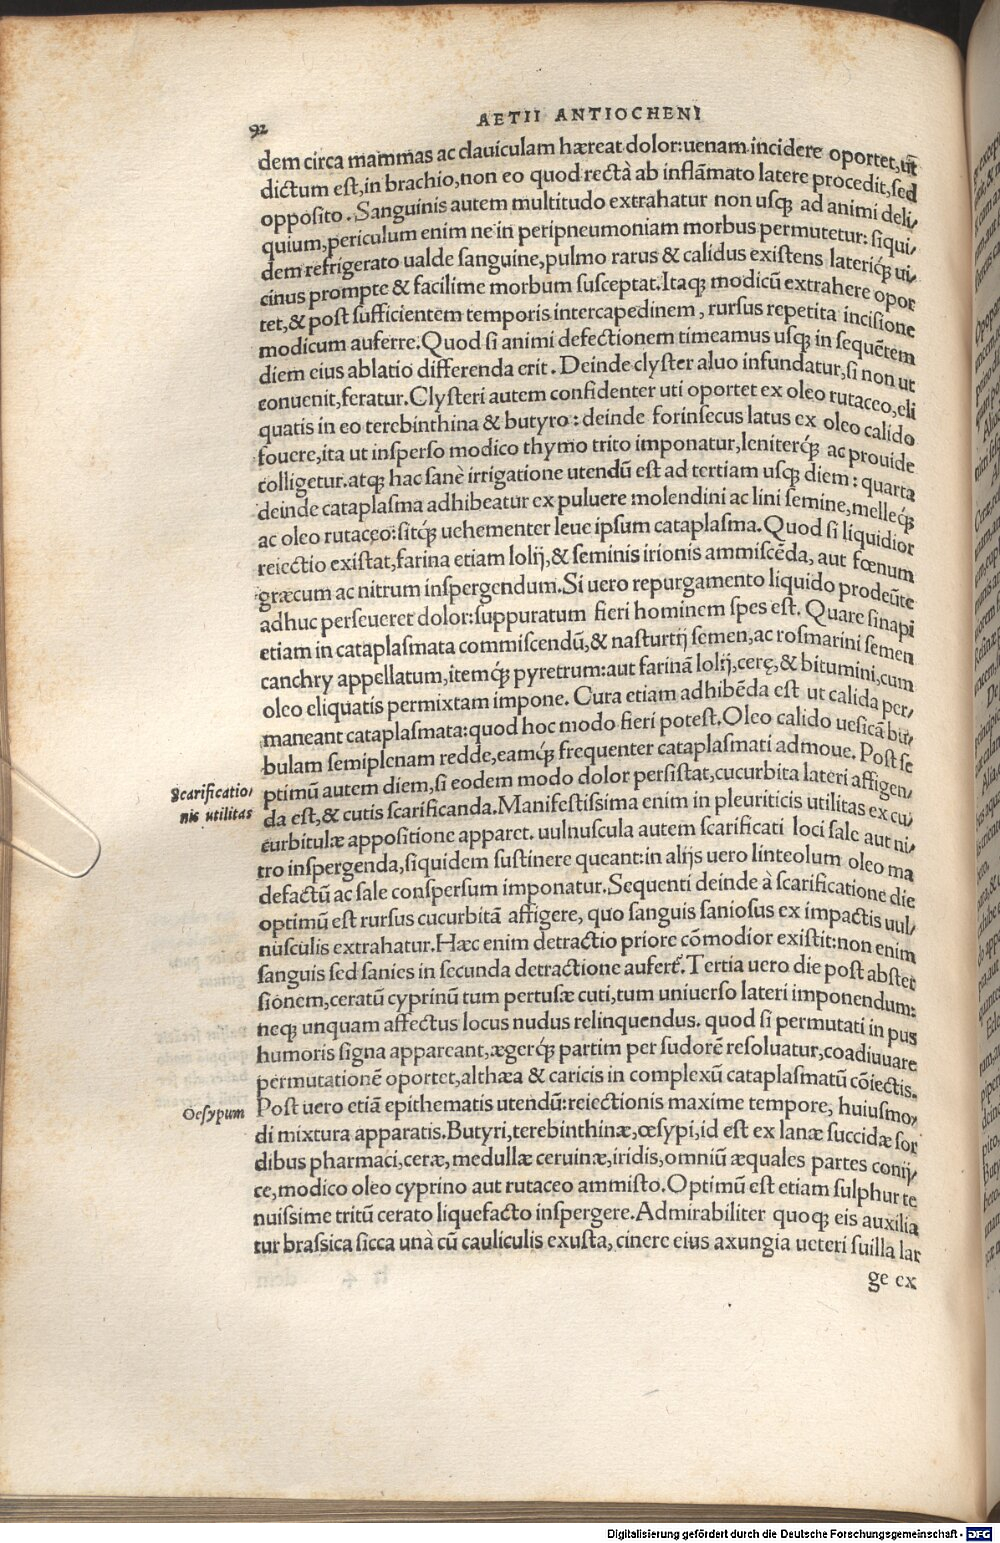 92
AETII ANTIOCHENI
dem circa mammas ac clauiculam hæreat dolor:uenam incidere oportet,ut̄
dictum eſt,in brachio,non eo quod rectà ab inflāmato latere procedit,ſed
oppoſito. Sanguinis autem multitudo extrahatur non uſq̢ ad animi deli⸗
quium,periculum enim ne in peripneumoniam morbus permutetur: ſiqui⸗
dem refrigerato ualde ſanguine,pulmo rarus & calidus exiſtens lateriq́ꝫ ui⸗
cinus prompte & facilime morbum ſuſceptat.Itaqꝫ modicū extrahere opor
tet,& poſt ſufficientem temporis intercapedinem, rurſus repetita inciſione
modicum auferre.Quod ſi animi defectionem timeamus uſqꝫ in ſequētem
diem eius ablatio differenda erit. Deinde clyſter aluo infundatur,ſi non ut
conuenit,feratur.Clyſteri autem confidenter uti oportet ex oleo rutaceo,eli
quatis in eo terebinthina & butyro: deinde forinſecus latus ex oleo calido
fouere,ita ut inſperſo modico thymo trito imponatur,leniterq́ꝫ ac prouide
colligetur.atqꝫ hac ſanè irrigatione utendū eſt ad tertiam uſqꝫ diem: quarta
deinde cataplaſma adhibeatur ex puluere molendini ac lini ſemine,melleq́ꝫ
ac oleo rutaceo:ſitq́ꝫ uehementer leue ipſum cataplaſma.Quod ſi liquidior
reiectio exiſtat,farina etiam lolij,& ſeminis irionis ammiſcēda, aut fœnum
græcum ac nitrum inſpergendum.Si uero repurgamento liquido prodeūte
adhuc perſeueret dolor:ſuppuratum fieri hominem ſpes eſt. Quare ſinapi
etiam in cataplaſmata commiſcendū,& naſturtij ſemen,ac roſmarini ſemen
canchry appellatum,itemq́ꝫ pyretrum:aut farinā lolij,cerę,& bitumini,cum
oleo eliquatis permixtam impone. Cura etiam adhibēda eſt ut calida per⸗
maneant cataplaſmata:quod hoc modo fieri poteſt.Oleo calido ueſicā bu⸗
bulam ſemiplenam redde,eamq́ꝫ frequenter cataplaſmati admoue. Poſt ſe
ptimū autem diem,ſi eodem modo dolor perſiſtat,cucurbita lateri affigen⸗
Scarificatio⸗
nis utilitas
da eſt,& cutis ſcarificanda.Manifeſtiſsima enim in pleuriticis utilitas ex cu⸗
curbitulæ appoſitione apparet. uulnuſcula autem ſcarificati loci ſale aut ni⸗
tro inſpergenda,ſiquidem ſuſtinere queant:in alijs uero linteolum oleo ma
defactū ac ſale conſperſum imponatur.Sequenti deinde à ſcarificatione die
optimū eſt rurſus cucurbitā affigere, quo ſanguis ſanioſus ex impactis uul⸗
nuſculis extrahatur.Hæc enim detractio priore cōmodior exiſtit:non enim
ſanguis ſed ſanies in ſecunda detractione aufert᷑.Tertia uero die poſt abſter
ſionem,ceratū cyprinū tum pertuſæ cuti,tum uniuerſo lateri imponendum:
neqꝫ unquam affectus locus nudus relinquendus. quod ſi permutati in pus
humoris ſigna appareant,ægerq́ꝫ partim per ſudorē reſoluatur,coadiuuare
permutationē oportet,althæa & caricis in complexū cataplaſmatū cōiectis.
Oeſypum
Poſt uero etiā epithematis utendū:reiectionis maxime tempore, huiuſmo⸗
di mixtura apparatis.Butyri,terebinthinæ,œſypi,id eſt ex lanæ ſuccidæ ſor
dibus pharmaci,ceræ,medullæ ceruinæ,iridis,omniū æquales partes conij⸗
ce,modico oleo cyprino aut rutaceo ammiſto.Optimū eſt etiam ſulphur te
nuiſsime tritū cerato liquefacto inſpergere.Admirabiliter quoqꝫ eis auxilia
tur braſsica ſicca unà cū cauliculis exuſta,cinere eius axungia ueteri ſuilla lar
ge ex
Digitalisierung gefördert durch die Deutsche Forschungsgemeinschaft - DFG